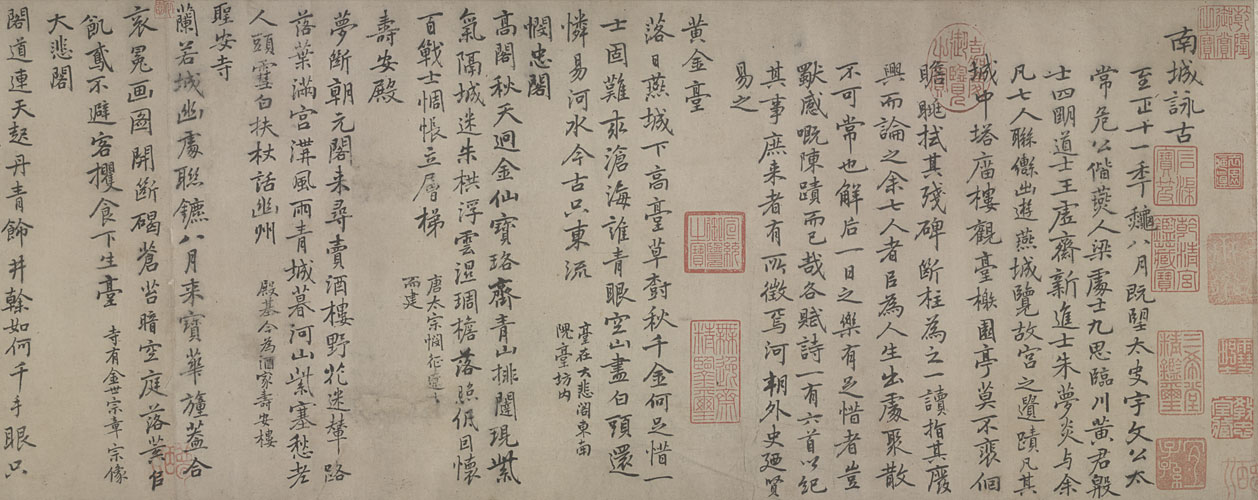 南城詠古
至正十一年龝八月既望太史宇文公太
常危公偕燕人梁處士九思臨川黄君殷
士四明道士王虚齋新進士朱夢炎与余
凡七人聯轡出遊燕城覽故宫之遺蹟凡其
城中塔廟樓觀臺榭園亭莫不裵徊
瞻眺拭其殘碑斷柱為之一讀指其廢
興而論之余七人者自為人生出處聚散
不可常也解后一日之樂有足惜者豈
獸感嘅陳蹟而已哉各賦詩一有六首以紀
其事庶来者有所徵焉河朔外史廼賢
易之
黄金臺
落日燕城下高臺草樹秋千金何足惜一
士固難求滄海誰青眼空山盡白頭還
憐易河水今古只東流
臺在大悲閣東南
隗臺坊内
憫忠閣
髙閣秋天迥金仙寳珞齊青山排闥現紫
氣隔城迷朱栱浮雲濕琱檐落照低因懷
百戰士惆悵立層梯
唐太宗憫征遼
而建
壽安殿
夢斷朝元閣来尋賣酒樓野花迷輦路
落葉滿宫溝風雨青城暮河山紫塞愁老
人頭雪白扶杖話幽州
殿基今為酒家壽安樓
聖安寺
蘭若城幽處聯鑣八月来寳華旛蓋合
衮冕画圖開斷碣蒼苔暗空庭落葉
飢鳶不避客攫食下生臺
寺有金世宗章宗像
大悲閣
閣道連天起丹青餙井幹如何千手眼只